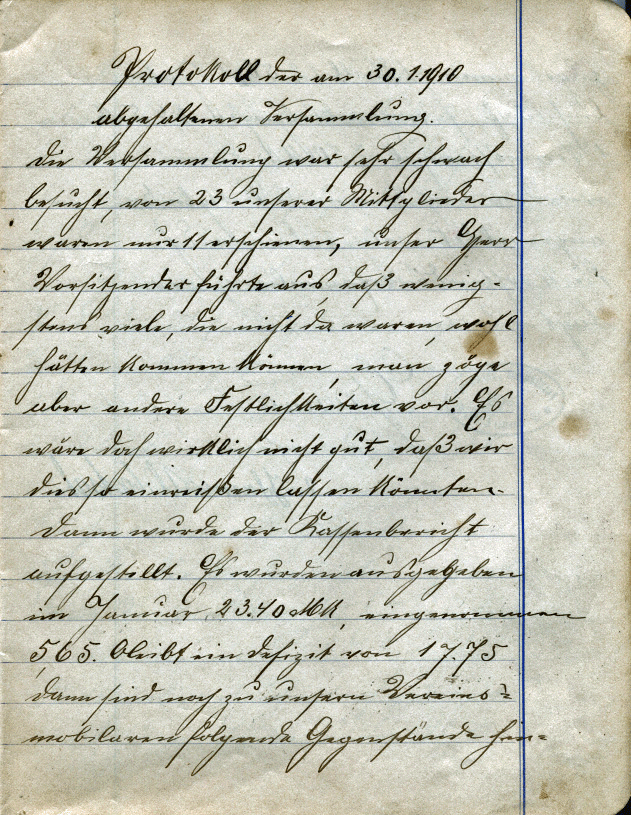 Protokoll der am 30.1.1910
abgehaltenen Versammlung.
Die Versammlung war sehr schwach
besucht, von 23 unserer Mitglieder
waren nur 11 erschienen, unser Herr
Vorsitzender führte aus, daß wenig-
stens viele, die nicht da waren, wohl
hätten kommen können, man zöge
aber andere Festlichkeiten vor. Es
wäre doch wirklich nicht gut, daß wir
dies so einreißen lassen könnten.
Dann wurde der Kassenbericht
aufgestellt. Es wurden ausgegeben
im Januar 23.40 Mk, eingenommen
5,65. bleibt ein Defizit von 17.75
Dann sind noch zu unsern Vereins-
mobilaren folgende Gegenstände hin-